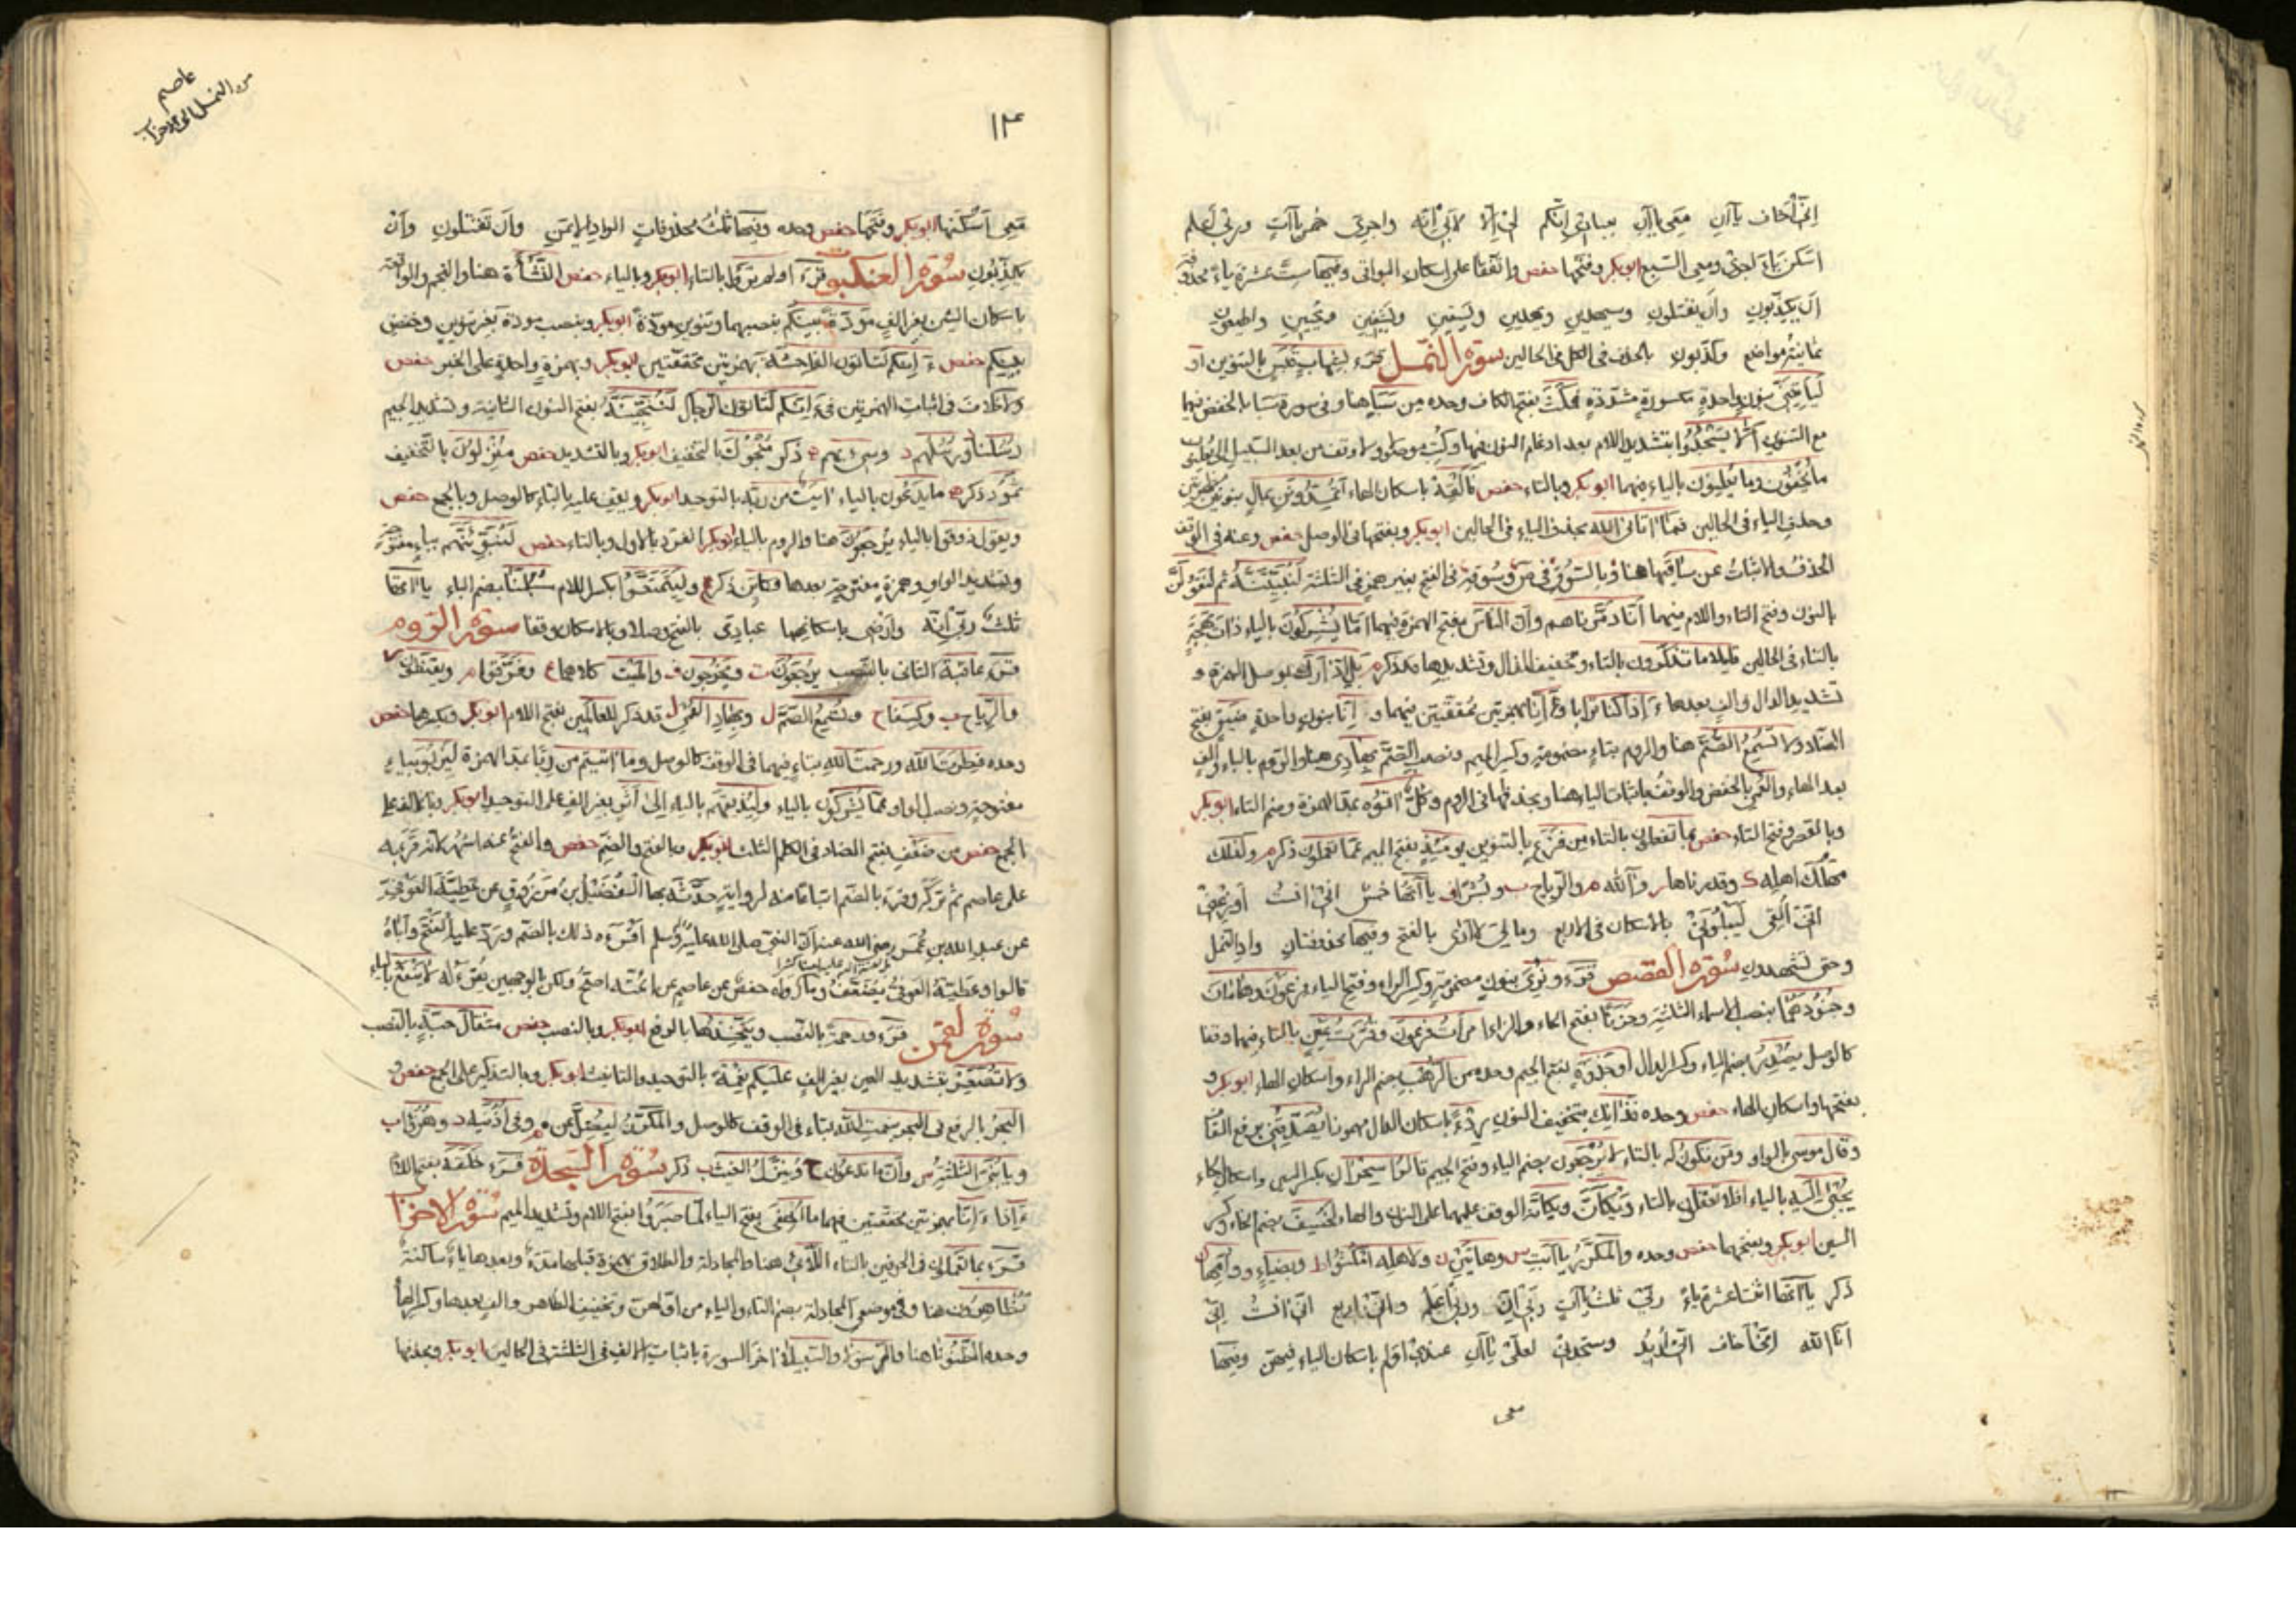 إني أخاف ياآن معي ياآن بعبادي إنكم لي إلا لأبي إنه واجري خمس ياآت وربي أعلم
اسكن ياء اجري ومعي السبع ابوبكر وفتحها حفص واتفقا على اسكان البواقي وفيها ست عشرة ياء محذوفة
ان يكذبون وان يقتلون وسيهدين ويهدين ويسقين ويشفين ويحيين واطيعون
ثمانية مواضع وكذبون بالحذف في الكل في الحالين سورة النمل قرء بشهاب قبس بالتنوين او
ليأتيني بنون واحدة مكسورة مشددة فمكث بفتح الكاف وحده من سبإ هنا وفي سورة سبا بالخفض فيهما
مع التنوين ألا يسجدوا بتشديد اللام بعد ادغام النون فيها
ما تخفون وما تعلنون بالياء فيهما ابوبكر وبالتاء حفص فألقه باسكان الهاء أتمدونن بمال بنونين
وحذف الياء في الحالين فما اتاني الله بحذف الياء في الحالين ابوبكر وبفتحها في الوصل حفص وعنه في الوقف
الحذف والاثبات عن ساقيها هنا وبالسوق في ص وسوقه في الفتح بغير همز في الثلثة لنبيتنه ثم لنقولن
بالنون وفتح التاء واللام فيهما أنا دمرناهم وأن الناس بفتح الهمزة فيهما أما يشركون بالياء ذات بهجة
بالتاء في الحالين قليلا ما تذكرون بالتاء وتخفيف الذال وتشديدها قد ذكر بل ادارك بوصل الهمزة و
تشديد الدال والف بعدها ءإذا كنا ترابا وءإنا بهمزتين محققتين فيهما و إنا بنون واحدة ضيق بفتح
الضاد ولا تسمع الصم هنا والروم بتاء مضمومة وكسر الميم ونصب الصم بهادي هنا والروم بالباء والف
بعد الهاء والعمي بالخفض والوقف باثبات الياء هنا وبحذفها في الروم وكل اتوه بمد الهمزة وضم التاء ابوبكر
وبالقصر وفتح التاء حفص بما تفعلون بالتاء من فزع بالتنوين يومئذ بفتح الميم عما تعملون ذكر وكذلك
مهلك اهله وقدرناها ر وآلله م والرياح ب وبشرا ف ياآتها خمس اني انست أوزعني
اني ألقي ليبلوني بالاسكان في الاربع ومالي لا أرى بالفتح وفيها محذوفتان واد النمل
وحتى تشهدون سورة القصص قرء ونري بنون مضمومة وكسر الراء وفتح الياء فرعون وهامان
وجنودهما بنصب الاسماء الثلثة وحزنا بفتح الحاء والزاء امرأت فرعون وقرت عين بالتاء فيهما وقفا
كالوصل يصدر بضم الياء وكسر الدال أو جذوة بفتح الجيم وحده من الرهب بضم الراء واسكان الهاء ابوبكر و
بفتحها واسكان الهاء حفص وحده فذانك بتخفيف النون ردءا باسكان الدال مهموزا يصدقني برفع القاف
وقال موسى بالواو ومن تكون له بالتاء لا يرجعون بضم الياء وفتح الجيم قالوا سحران بكسر السين واسكان الحاء
يجبى اليه بالياء افلا تعقلون بالتاء ويكأن ويكأنه الوقف عليهما على النون والهاء لخسف بضم الخاء وكسر
السين ابوبكر وبفتحهما حفص وحده والمكرر ياآبت س وهاتين ن ولاهله امكثوا ط وبضياء و
ذكر ياآتها اثنتا عشرة ياء ربي ثلث ياآت ربي أن وربي أعلم واني اربع اني انست إني
انا الله إني أخاف إني أريد وستجدني لعلي ياآن عندي أولم باسكان الياء فيهن وفيها
معي
١٣٤
عاصم
من النمل الى الاحزاب
معي أسكنها ابوبكر وفتحها حفص وحده وفيها ثلث محذوفات الواد الايمن وأن تقتلون وأن
يكذبون سورة العنكبوت قرء اولم تروا بالتاء ابوبكر وبالياء حفص النشأة هنا والنجم والواقعة
باسكان الشين بغير الف مودة بينكم بنصبهما وتنوين مودة ابوبكر وبنصب مودة بغير تنوين وخفض
بينكم حفص ءإنكم لتأتون الفاحشة بهمزتين محققتين ابوبكر وبهمزة واحدة على الخبر حفص
ولا خلاف في اثبات الهمزتين في ءإنكم لتأتون الرجال لننجينه بفتح النون الثانية وتشديد الجيم
رسلنا ورسلهم وسيء بهم ذكر منجوك بالتخفيف ابوبكر وبالتشديد حفص منزلون بالتخفيف
ثمود ذكر ما يدعون بالياء ايت من ربه بالتوحيد ابوبكر ويقف عليه بالتاء كالوصل وبالجمع حفص
ويقول ذوقوا بالياء يرجعون هنا والروم بالياء ابوبكر انفرد بالاول وبالتاء حفص لنبوئنهم بباء مفتوحة
وتشديد الواو وهمزة مفتوحة بعدها وكأين ذكر وليتمتعوا بكسر اللام سبلنا بضم الباء ياآتها
ثلث ربي إنه وأرضي باسكانهما عبادي بالفتح وصلا وبالاسكان وقفا سورة الروم
قرء عاقبة الثاني بالنصب يرجعون ت ويخرجون ف والميت كلاهما ع وفرقوا م ويقنطون
والرياح ب وكسفا ح وتسمع الصم ل وبهاد العمي ل قد ذكر للعالمين بفتح اللام ابوبكر وبكسرها حفص
وحده فطرت الله ورحمت الله بتاء فيهما في الوقف كالوصل وما اتيتم من ربا بمد الهمزة ليربو بياء
مفتوحة ونصب الواو عما يشركون بالياء وليذيقهم بالياء إلى أثر بغير الف على التوحيد ابوبكر وبالالف على
الجمع حفص من ضعف بفتح الضاد في الكلم الثلث ابوبكر وبالفتح والضم حفص والفتح عنه اشهر لانه قرء به
على عاصم ثم تركه وقرء بالضم اتباعا منه لرواية حدثه بها الفضيل بن مرزوق عن عطية العوفي
عن عبد الله بن عمر رضي الله عنه أن النبي صلى الله عليه وسلم أقرءه ذلك بالضم ورد عليه الفتح وأباه
قالوا وعطية العوفي يضعف وما رواه حفص عن عاصم عن ائمته اصح ولكن بالوجهين يقرء له لا ينفع بالياء
سورة لقمن قرء ورحمة بالنصب ويتخذها بالرفع ابوبكر وبالنصب حفص مثقال حبة بالنصب
ولا تصعر بتشديد العين بغير الف عليكم نعمة بالتوحيد والتانيث ابوبكر وبالتذكير على الجمع حفص و
البحر بالرفع في البحر بنعمت الله بتاء في الوقف كالوصل والمكرر ليضل عن م وفي أذنيه د وهزؤا ب
ويا بني الثلثة س وأن ما تدعون ح وينزل الغيث ب ذكر سورة السجدة قرء خلقه بفتح اللام
ءإذا ءإنا بهمزتين محققتين فيهما ما أخفي بفتح الياء لما صبروا بفتح اللام وتشديد الميم سورة الاحزاب
قرء بما تعملون في الحرفين بالتاء اللائي هنا والمجادلة والطلاق بهمزة قبلها مدة وبعدها ياء ساكنة
تظاهرون هنا وفي موضعي المجادلة بضم التاء والياء من اولهن وتخفيف الظاء والف بعدها وكسر الهاء
وحده الظنونا هنا والرسولا والسبيلا اخر السورة باثبات الالف في الثلثة في الحالين ابوبكر وبحذفها